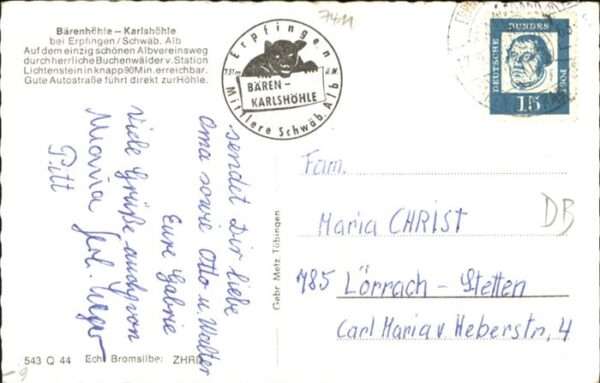 Bärenhöhle – Karlshöhle
bei Erpfingen/Schwäb. Alb
Auf dem einzig schönen Albvereinsweg
durch herrliche Buchenwälder v. Station
Lichtenstein in knapp 90 Min. erreichbar.
Gute Autostraße führt direkt zur Höhle.
7411
Erpfingen
BÄREN-
KARLSHÖHLE
Mittlere Schwäb. Alb
DEUTSCHE BUNDESPOST
15
sendet Dir liebe
Oma sowie Otto u. Walter
Eure Gabrie
Viele Grüße auch von
Maria
Pitt
Fam.
Maria CHRIST
DB
785 Lörrach – Stetten
Carl Maria v. Heberstr, 4
Gebr. Metz Tübingen
543 Q 44 Echt Bromsilber ZHRD
9